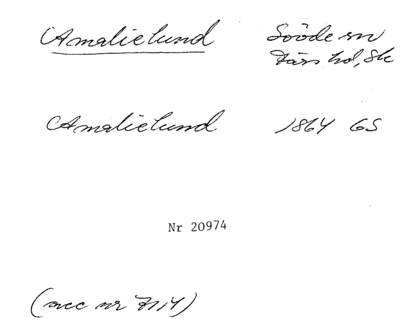 Amalielund Sööde sn
Färs hd, Sk
Amalielund 1864 GS
Nr 20974
(acc nr 7114)